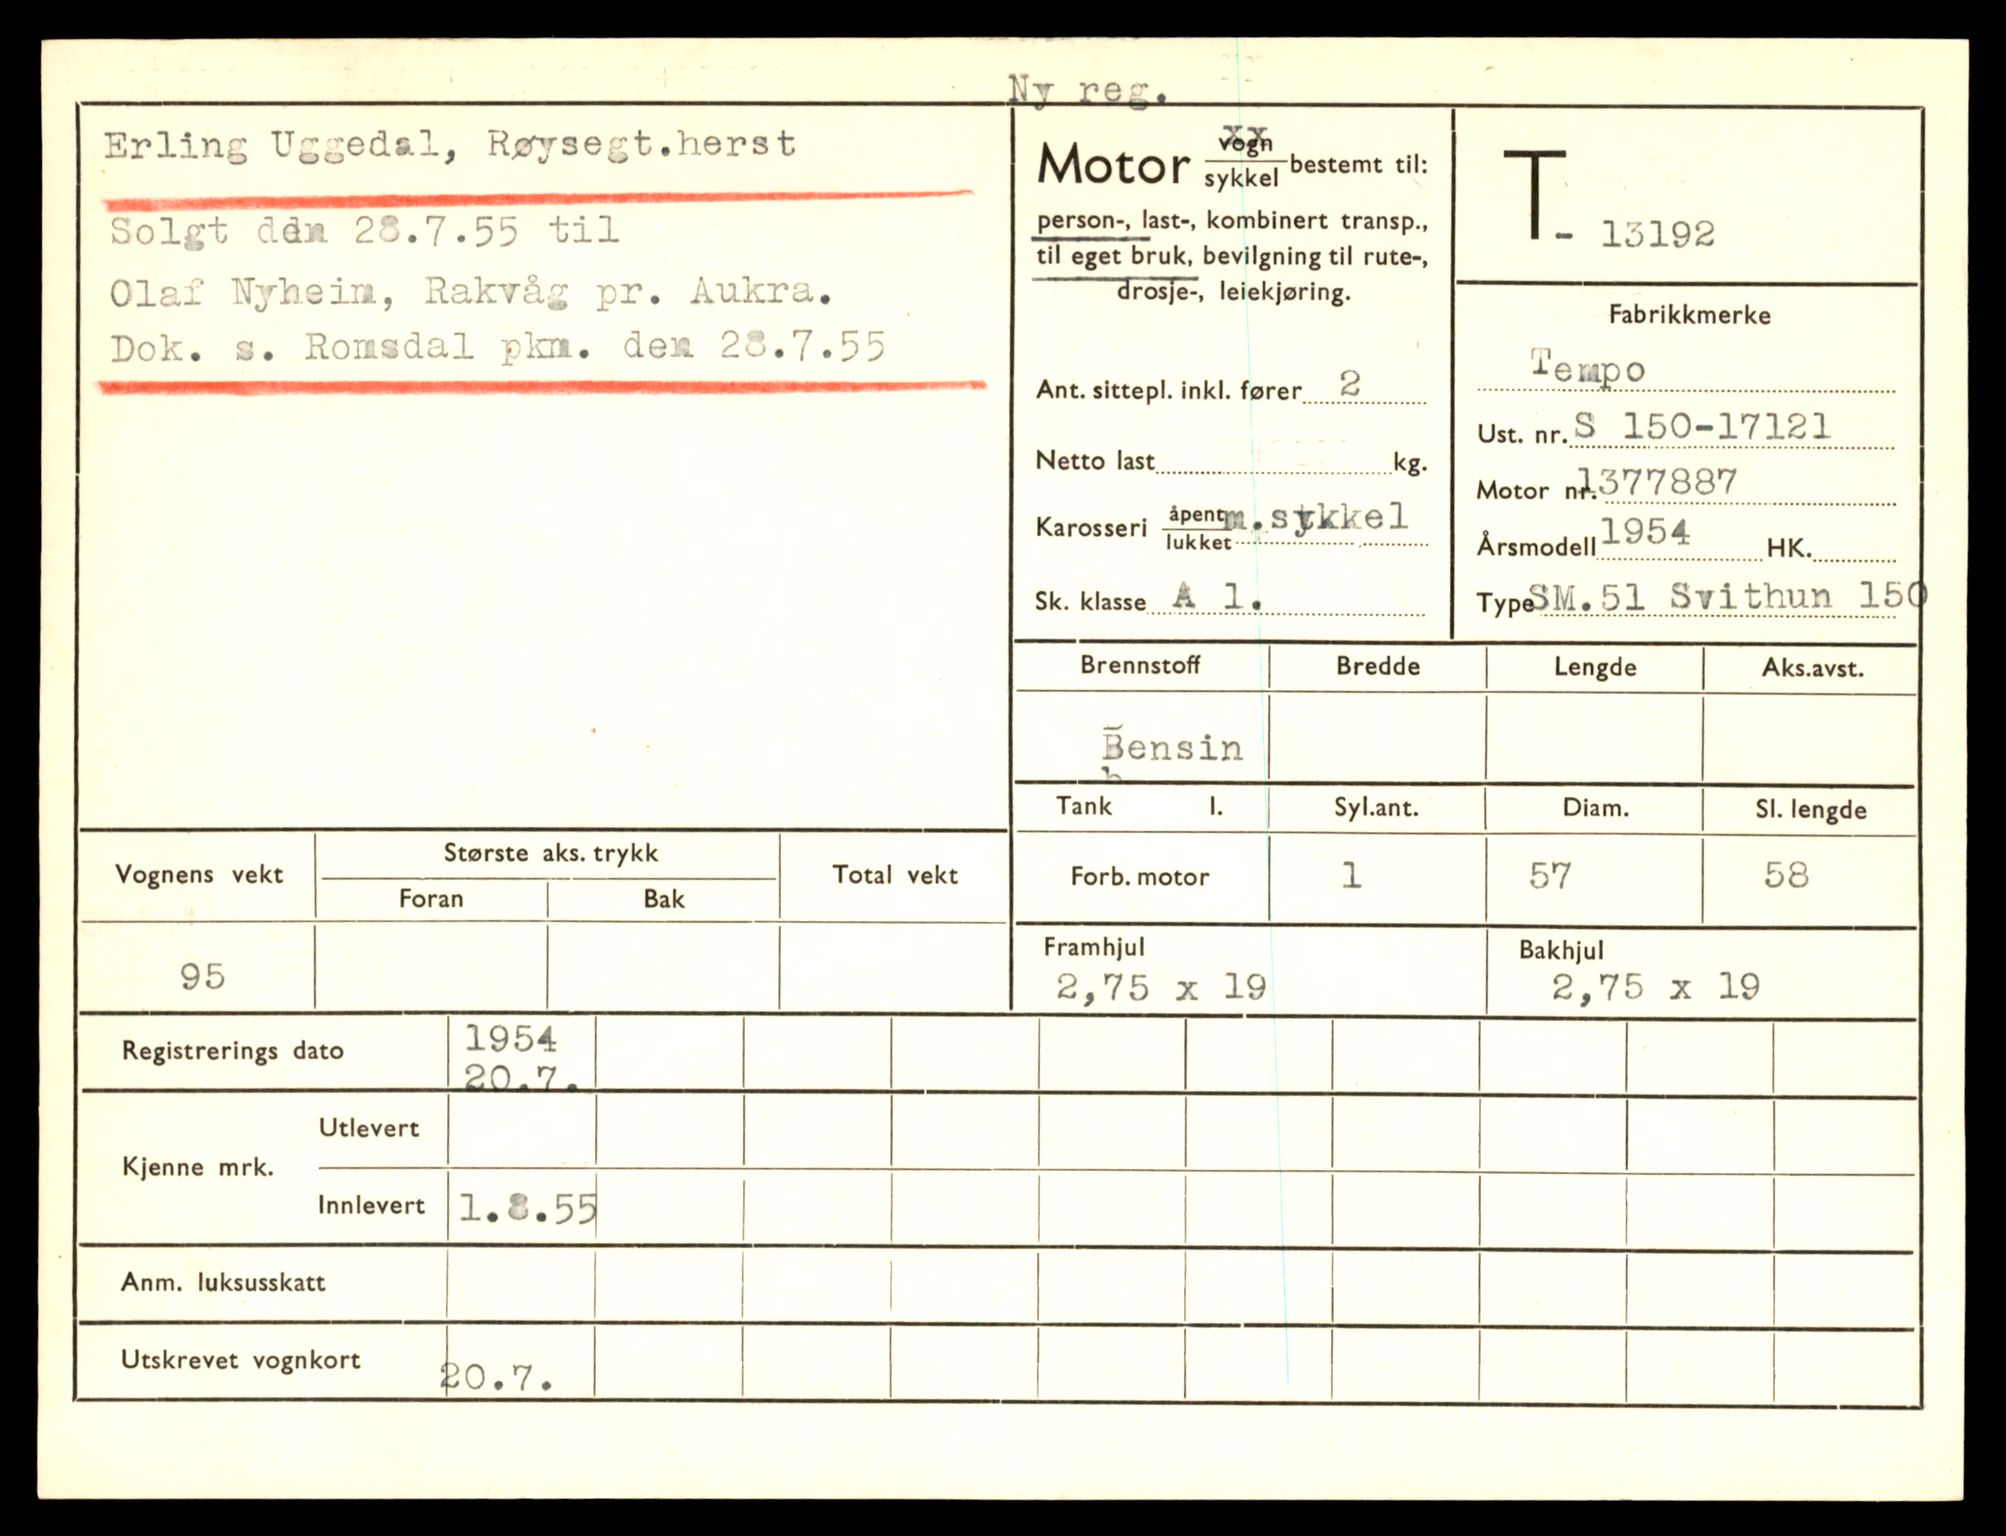 Ny reg.
Erling Uggedal, Røysegt.herst
Solgt den 28.7.55 til
Olaf Nyheim, Rakvåg pr. Aukra.
Dok. s. Romsdal pkm. den 28.7.55
Motor vogn sykkel bestemt til:
person-, last-, kombinert transp.,
til eget bruk, bevilgning til rute-,
drosje-, leiekjøring.
Ant. sittepl. inkl. fører 2
Netto last kg.
Karosseri åpent lukket m.sykkel
Sk. klasse A 1.
T- 13192
Fabrikkmerke
Tempo
Ust. nr. S 150-17121
Motor nr. 1377887
Årsmodell 1954 HK.
Type SM.51 Svithun 150
Brennstoff Bredde Lengde Aks.avst.
Bensin
Tank l. Syl.ant. Diam. Sl. lengde
Forb. motor 1 57 58
Framhjul Bakhjul
2,75 x 19 2,75 x 19
Vognens vekt Største aks. trykk Total vekt
Foran Bak
95
Registrerings dato 1954
20.7.
Kjenne mrk. Utlevert
Innlevert 1.8.55
Anm. luksusskatt
Utskrevet vognkort 20.7.